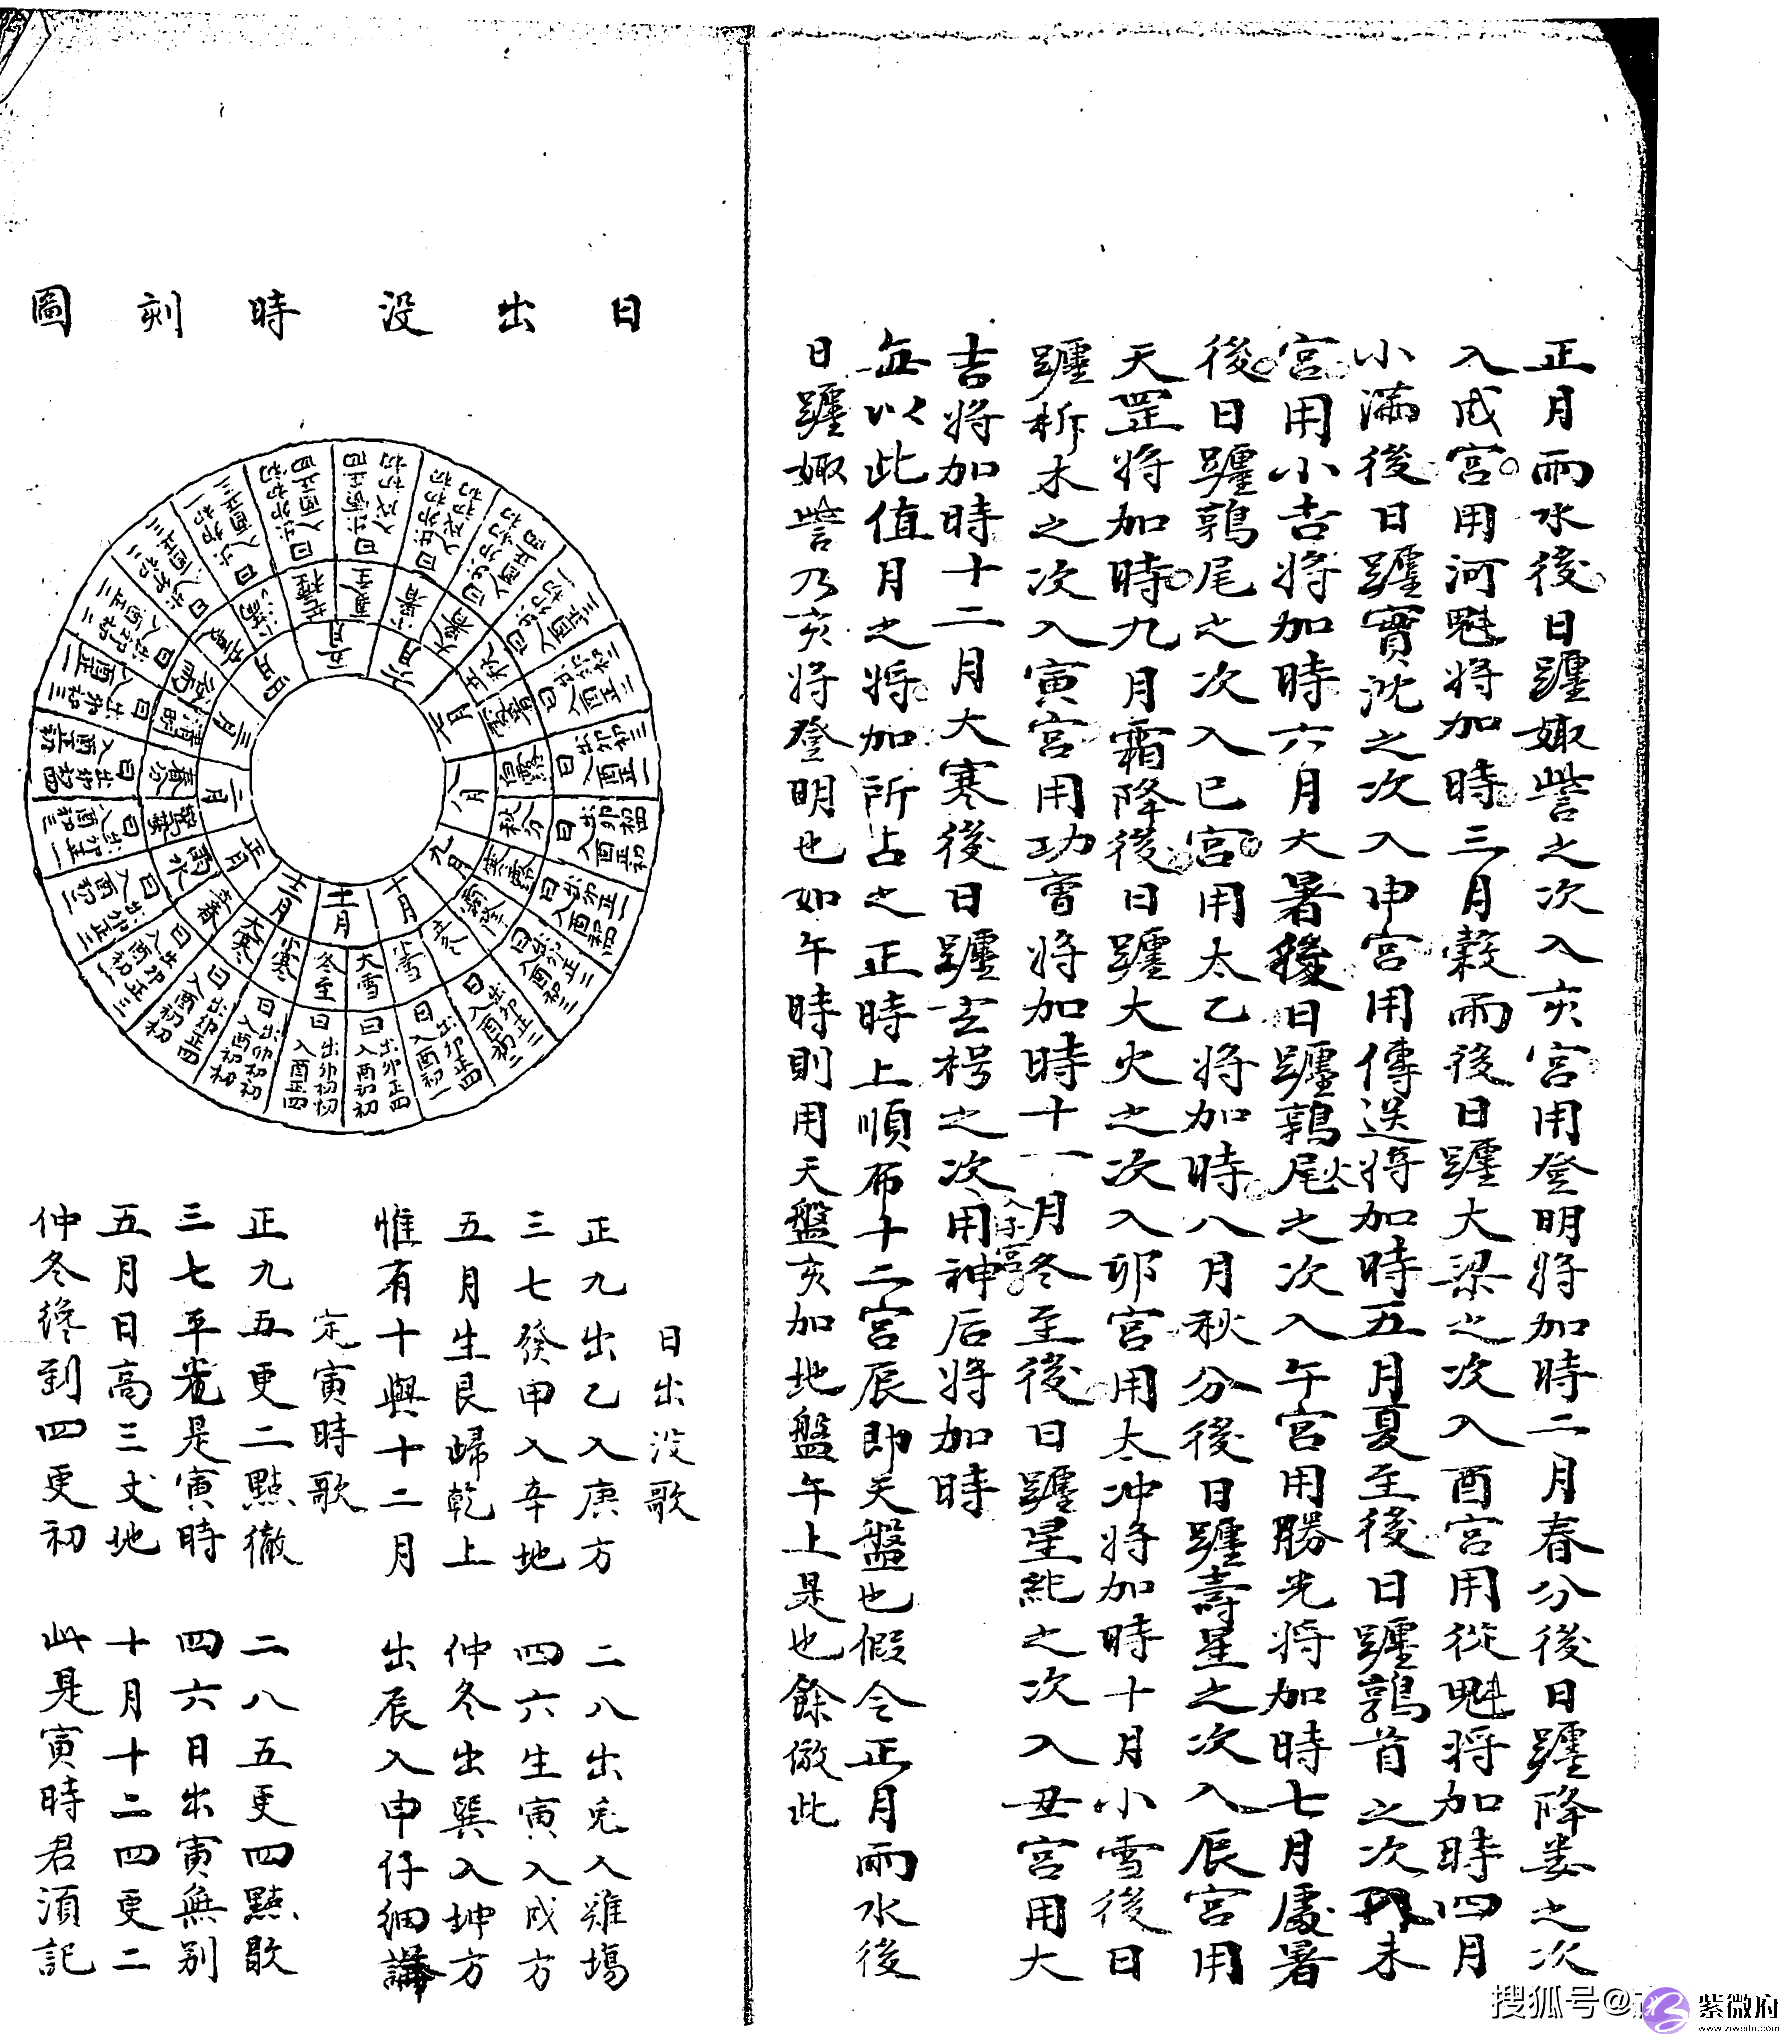 正月雨水後日躔娵訾之次入亥宮用登明將加時二月春分後日躔降婁之次
入戌宮用河魁將加時三月穀雨後日躔大梁之次入酉宮用從魁將加時四月
小滿後日躔實沈之次入申宮用傳送將加時五月夏至後日躔鶉首之次入未
宮用小吉將加時六月大暑後日躔鶉尾火之次入午宮用勝光將加時七月處暑
後日躔鶉尾之次入巳宮用太乙將加時八月秋分後日躔壽星之次入辰宮用
天罡將加時九月霜降後日躔大火之次入卯宮用太冲將加時十月小雪後日
躔析木之次入寅宮用功曹將加時十一月冬至後日躔星紀之次入丑宮用大
吉將加時十二月大寒後日躔玄枵之次入子宮用神后將加時
每以此值月之將加所占之正時上順布十二宮辰即天盤也假令正月雨水後
日躔娵訾乃亥將登明也如午時則用天盤亥加地盤午上是也餘倣此
日出没時刻圖
五月
六月
七月
八月
九月
十月
十一月
十二月
正月
二月
三月
四月
夏至
小暑
大暑
立秋
處暑
白露
秋分
寒露
霜降
立冬
小雪
大雪
冬至
小寒
大寒
立春
雨水
驚蟄
春分
清明
穀雨
立夏
小滿
芒種
日出卯正四
日入酉初初
日出卯初初
日入酉正四
日出没歌
正九出乙入庚方 二八出兎入雞塲
三七發申入辛地 四六生寅入戌方
五月生艮歸乾上 仲冬出巽入坤方
惟有十與十二月 出辰入申仔細講
定寅時歌
正九五更二點徹 二八五更四點歇
三七平光是寅時 四六日出寅無别
五月日高三丈地 十月十二四更二
仲冬纔到四更初 此是寅時君須記
搜狐号@
紫微府
www.ziweifu.com